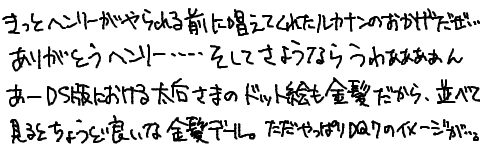 きっとヘンリーがやられる前に唱えてくれたルカナンのおかげだぜ…
ありがとうヘンリー……そしてさようならうわぁぁぁぁん
あーDS版における太后さまのドット絵も金髪だから、並べて
見るとちょうど良いな金髪デール。ただやっぱりDQ7のイメージが…。